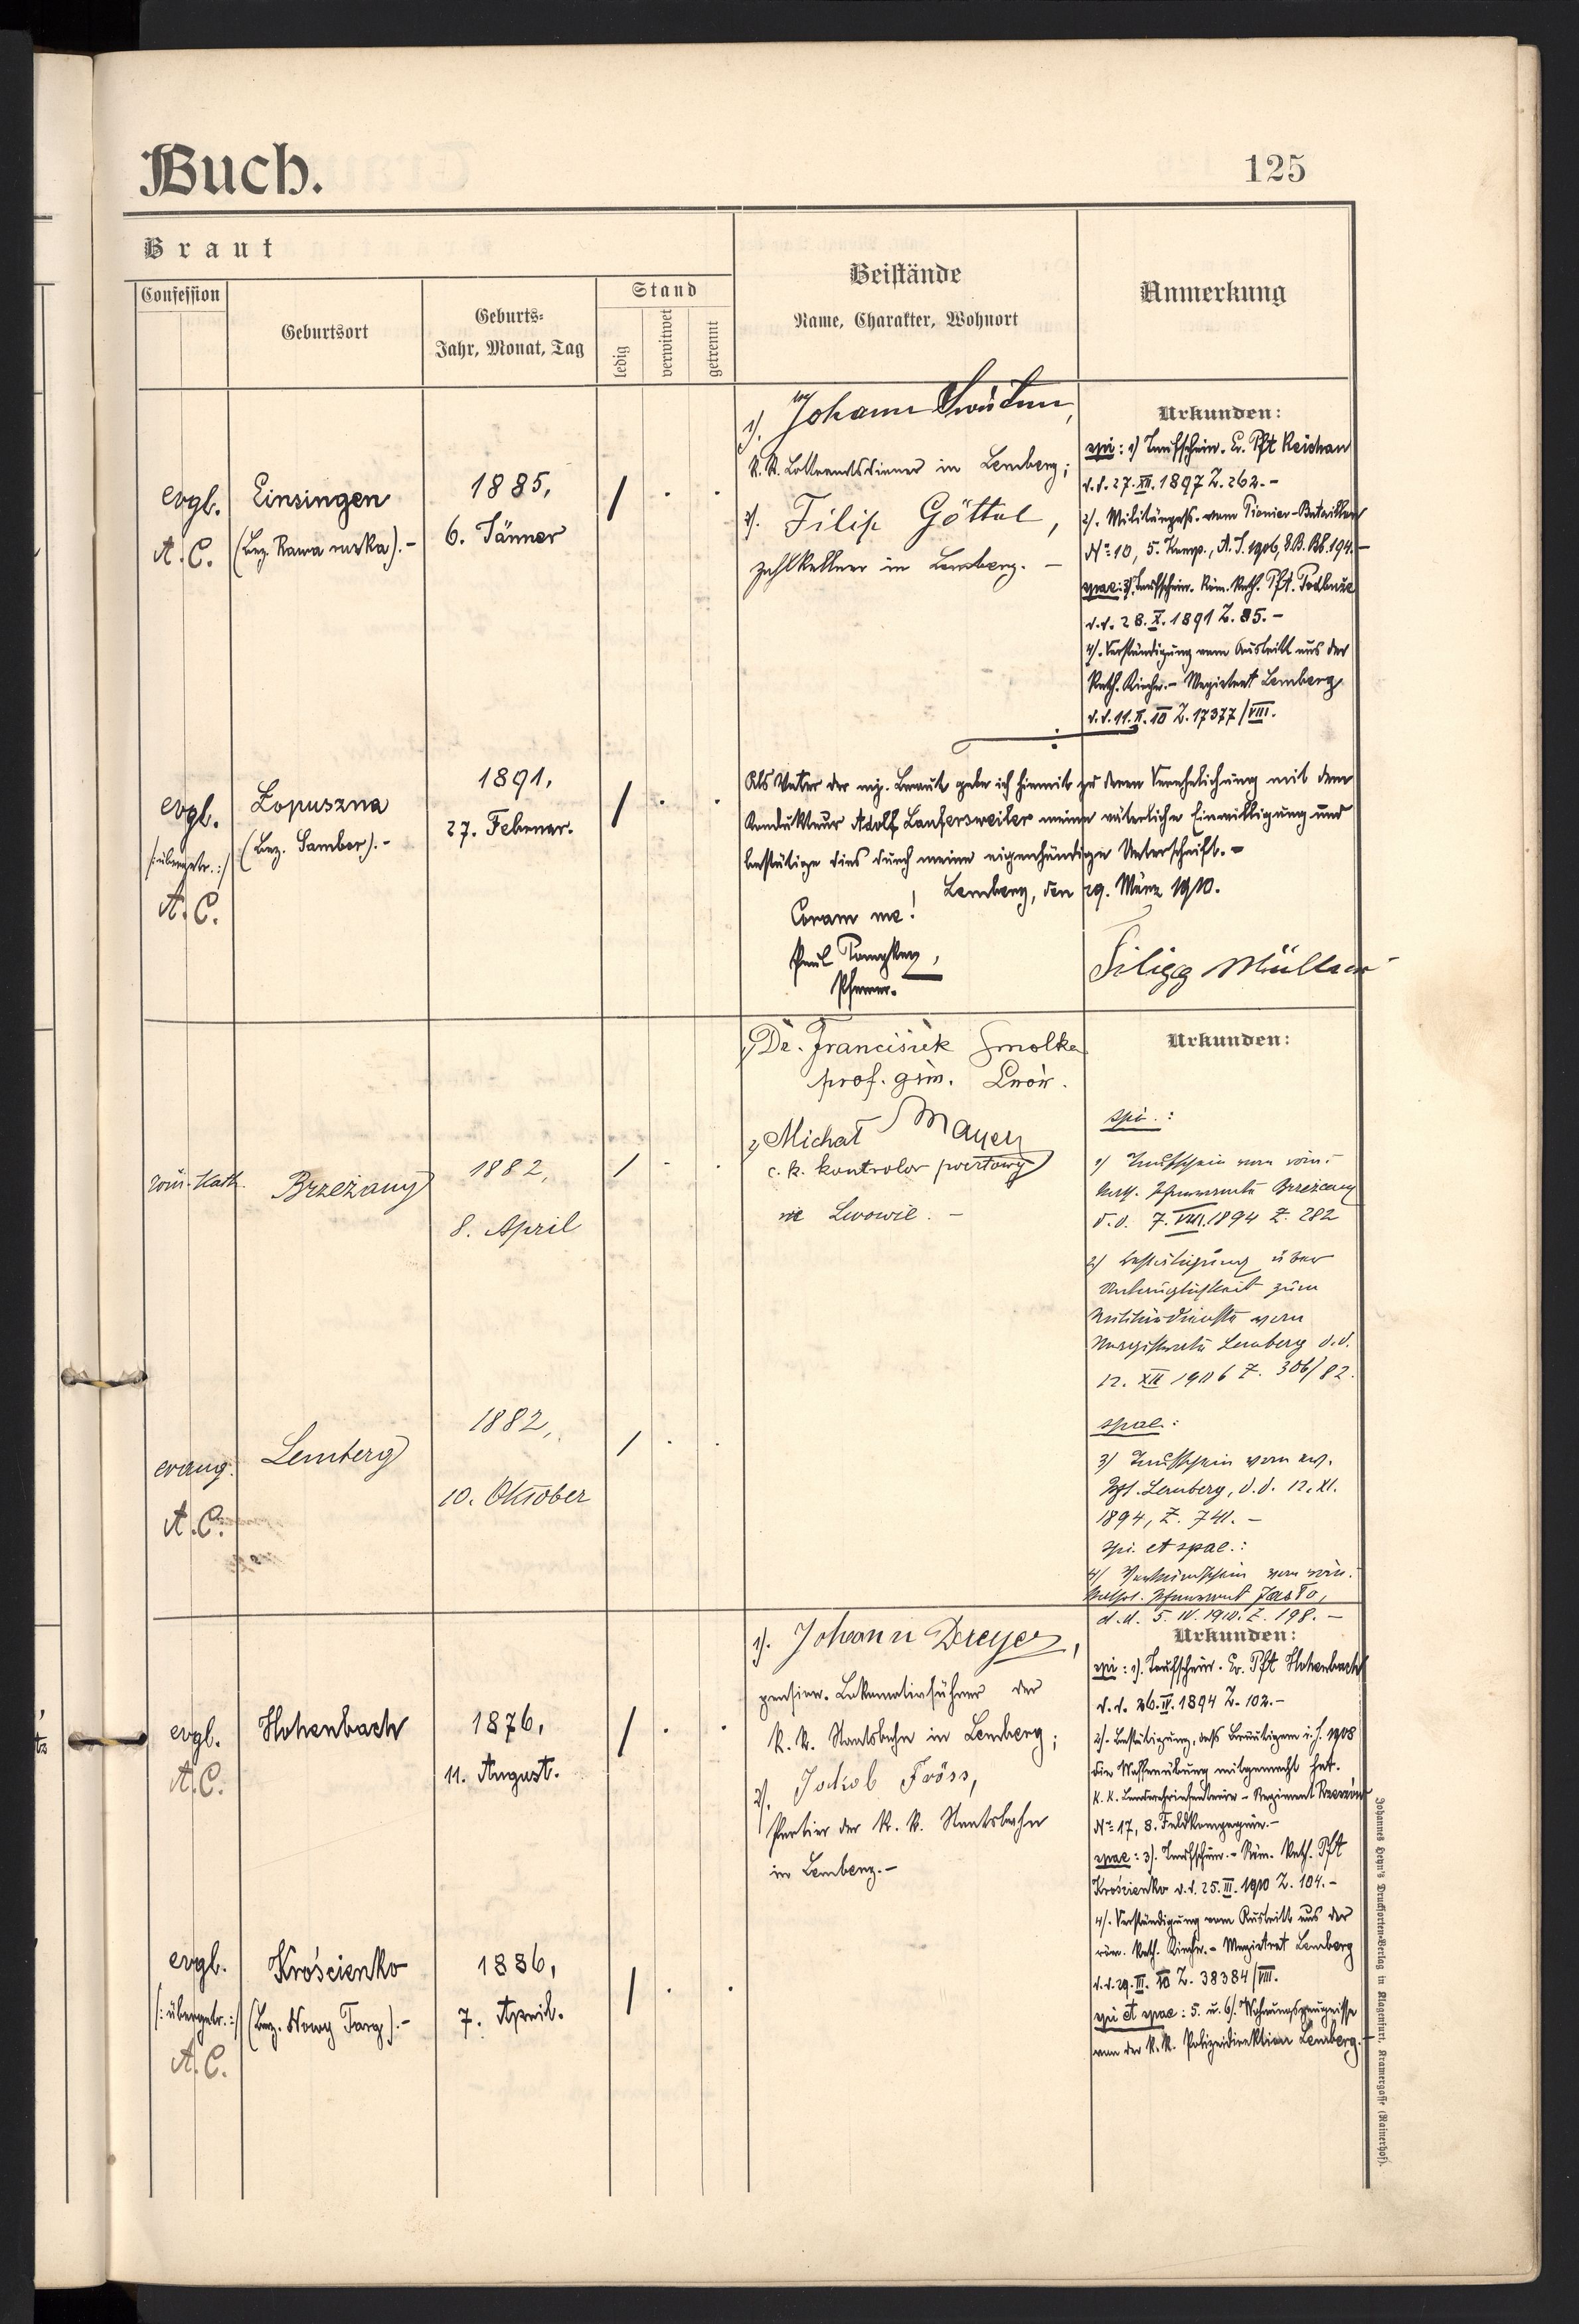 Buch.
125
Braut
Confession
Geburtsort
Geburts-
Jahr, Monat, Tag
Stand
ledig
verwitwet
getrennt
Beistände
Name, Charakter, Wohnort
Anmerkung
evgl.
A. C.
Einsingen
(Bez. Rawa ruska).-
1885,
6. Jänner
1). Johann
K. K. Lottoamtsdiener in Lemberg;
2). Filip Göttel,
Zahlkellner in Lemberg. -
Urkunden:
spi: 1) Taufschein. Ev. Pft Reichau
d. d. 27. XII. 1897 Z. 262.-
2). Militärpass. vom Pionier-Bataillon
No 10, 5. Komp., A. J. 1906, G. B. Bl. 194.-
spae: 3). Taufschein. Röm. Kath. Pft. Podbuże
d. d. 28. X. 1891 Z. 85.-
4). Verständigung vom Austritt aus der
Kath. Kirche.- Magistrat Lemberg
d. d. 11. II. 10 Z. 17377/VIII.
evgl.
/:übergetr.:/
A. C.
Łopuszna
(Bez. Sambor).-
1891,
27. Februar.
Als Vater der mj. Braut gebe ich hiemit zu deren Verehelichung mit dem
Kondukteur Adolf Laufersweiler meine väterliche Einwilligung und
bestätige dies durch meine eigenhändige Unterschrift.-
Lemberg, den 29. März 1910.
Coram me!
Paul
Pfarrer.
Müller
röm.-kath.
Brzeżany
1882,
8. April
1) Dr. Franciszek Smolka
prof. gim. Lwów.
2) Michał Mayer
c. k. kontrolor pocztowy
we Lwowie. -
Urkunden:
spi.:
1) Taufschein vom röm.-
kath. Pfarramte Brzeżany
d. d. 7. VIII. 1894 Z. 282
2) Bestätigung über
Untauglichkeit zum
Militärdienste vom
Magistrate Lemberg d. d.
12. XII 1906 Z. 306/82.
spae.:
3) Taufschein vom ev.
Pft. Lemberg, d. d. 12. XI.
1894, Z. 741. -
spi. et spae.:
4) Verkündschein vom röm.-
kathol. Pfarramt Jasło,
d. d. 5. IV. 1910. Z. 198. -
evang.
A. C.
Lemberg
1882,
10. Oktober
evgl.
A. C.
Hohenbach
1876,
11. August.
1). Johann Dreyer,
pension. Lokomotivführer der
K. K. Staatsbahn in Lemberg;
2). Jakob Fröss,
Portier der K. K. Staatsbahn
in Lemberg.-
Urkunden:
spi: 1). Taufschein. Ev. Pft Hohenbach
d. d. 26. IV. 1894 Z. 102.-
2). Bestätigung, dass Bräutigam i. J. 1908
die Waffenübung mitgemacht hat.
K. K. Landwehrinfanterie-Regiment Rzeszów
No 17, 8. Feldkompagnie.-
spae: 3). Taufschein.- Röm. Kath. Pft
Krościenko d. d. 25. III. 1910 Z. 104.-
4). Verständigung vom Austritt aus der
röm. Kath. Kirche.- Magistrat Lemberg
d. d. 29. III. 10 Z. 38384/VIII.
spi et spae: 5. u. 6). Wohnungszeugnisse
von der K. K. Polizeidirektion Lemberg.-
evgl.
/:übergetr.:/
A. C.
Krościenko
(Bez. Nowy Targ).-
1886,
7. April.
Johannes Heyn's Drucksorten-Verlag in Klagenfurt, Kramergasse (Rainerhof).